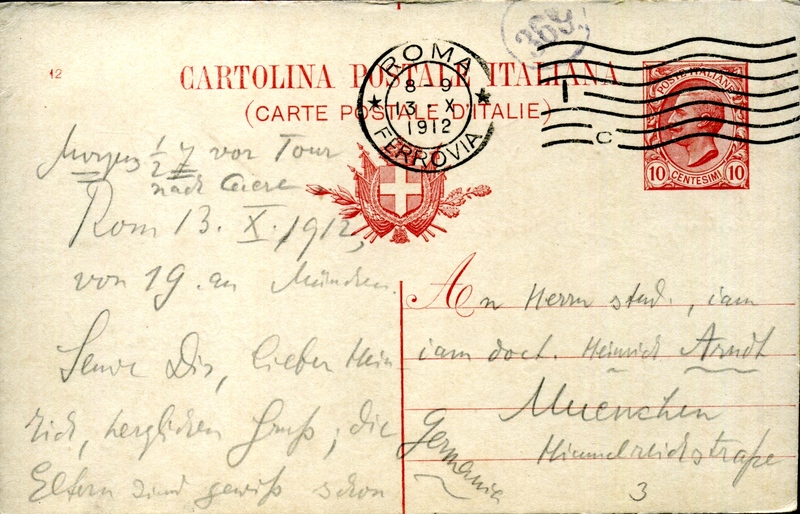 369.
12
CARTOLINA POSTALE ITALIANA
(CARTE POSTALE D'ITALIE)
ROMA
8-9
13·X
1912
FERROVIA
C
POSTE ITALIANE
10 CENTESIMI 10
Morgens ½ 7 vor Tour
nach Caere
Rom 13. X. 1912,
von 19. an München.
Sende Dir, lieber Hein
rich, herzlichen Gruß; die
Eltern sind gewiß schon
An Herrn stud., iam
iam doct. Heinrich Arndt
Muenchen
Himmelreichstraße
3
Germania